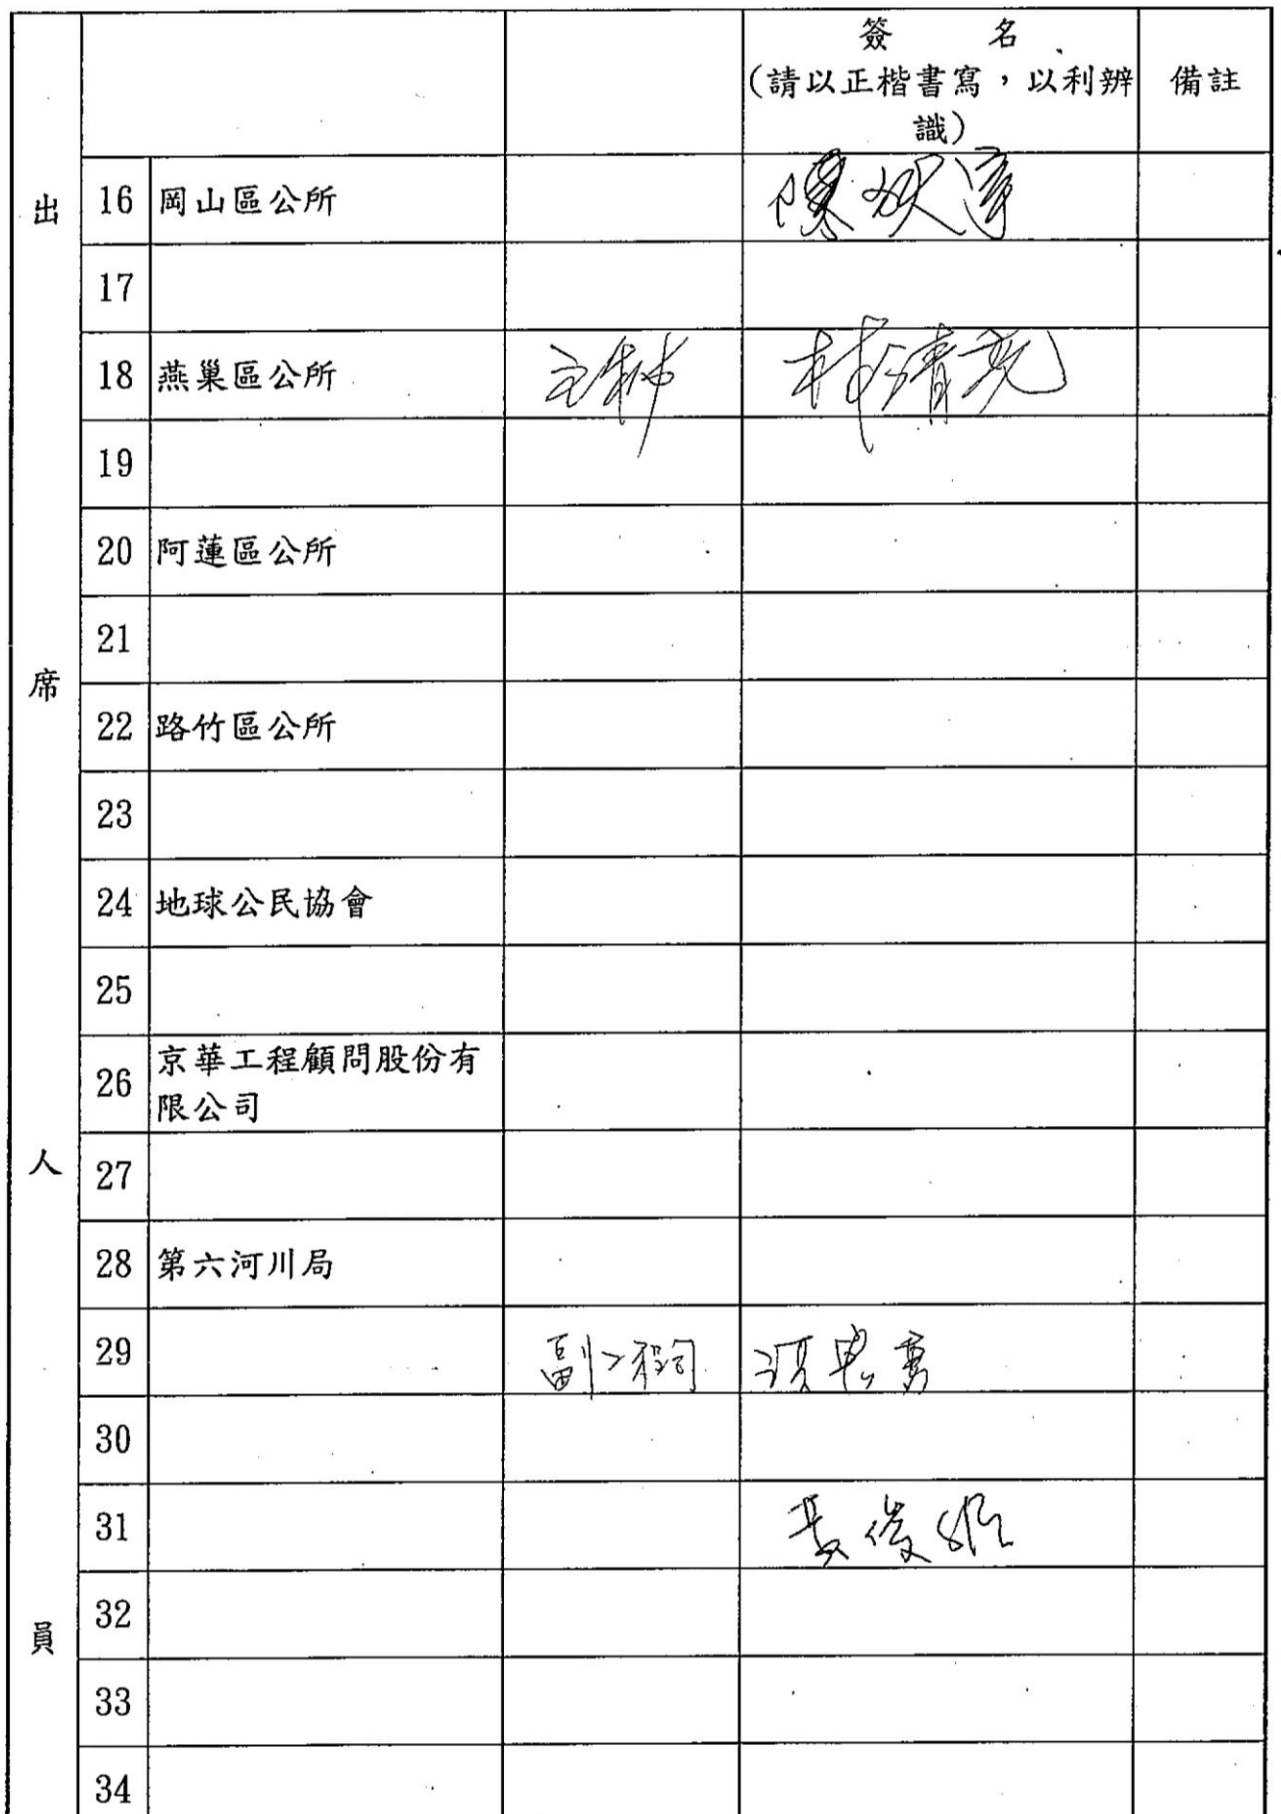 簽 名
(請以正楷書寫，以利辨
識)
備註
出
席
人
員
16 岡山區公所
17
18 燕巢區公所
19
20 阿蓮區公所
21
22 路竹區公所
23
24 地球公民協會
25
26 京華工程顧問股份有
限公司
27
28 第六河川局
29 副工程司
30
31
32
33
34